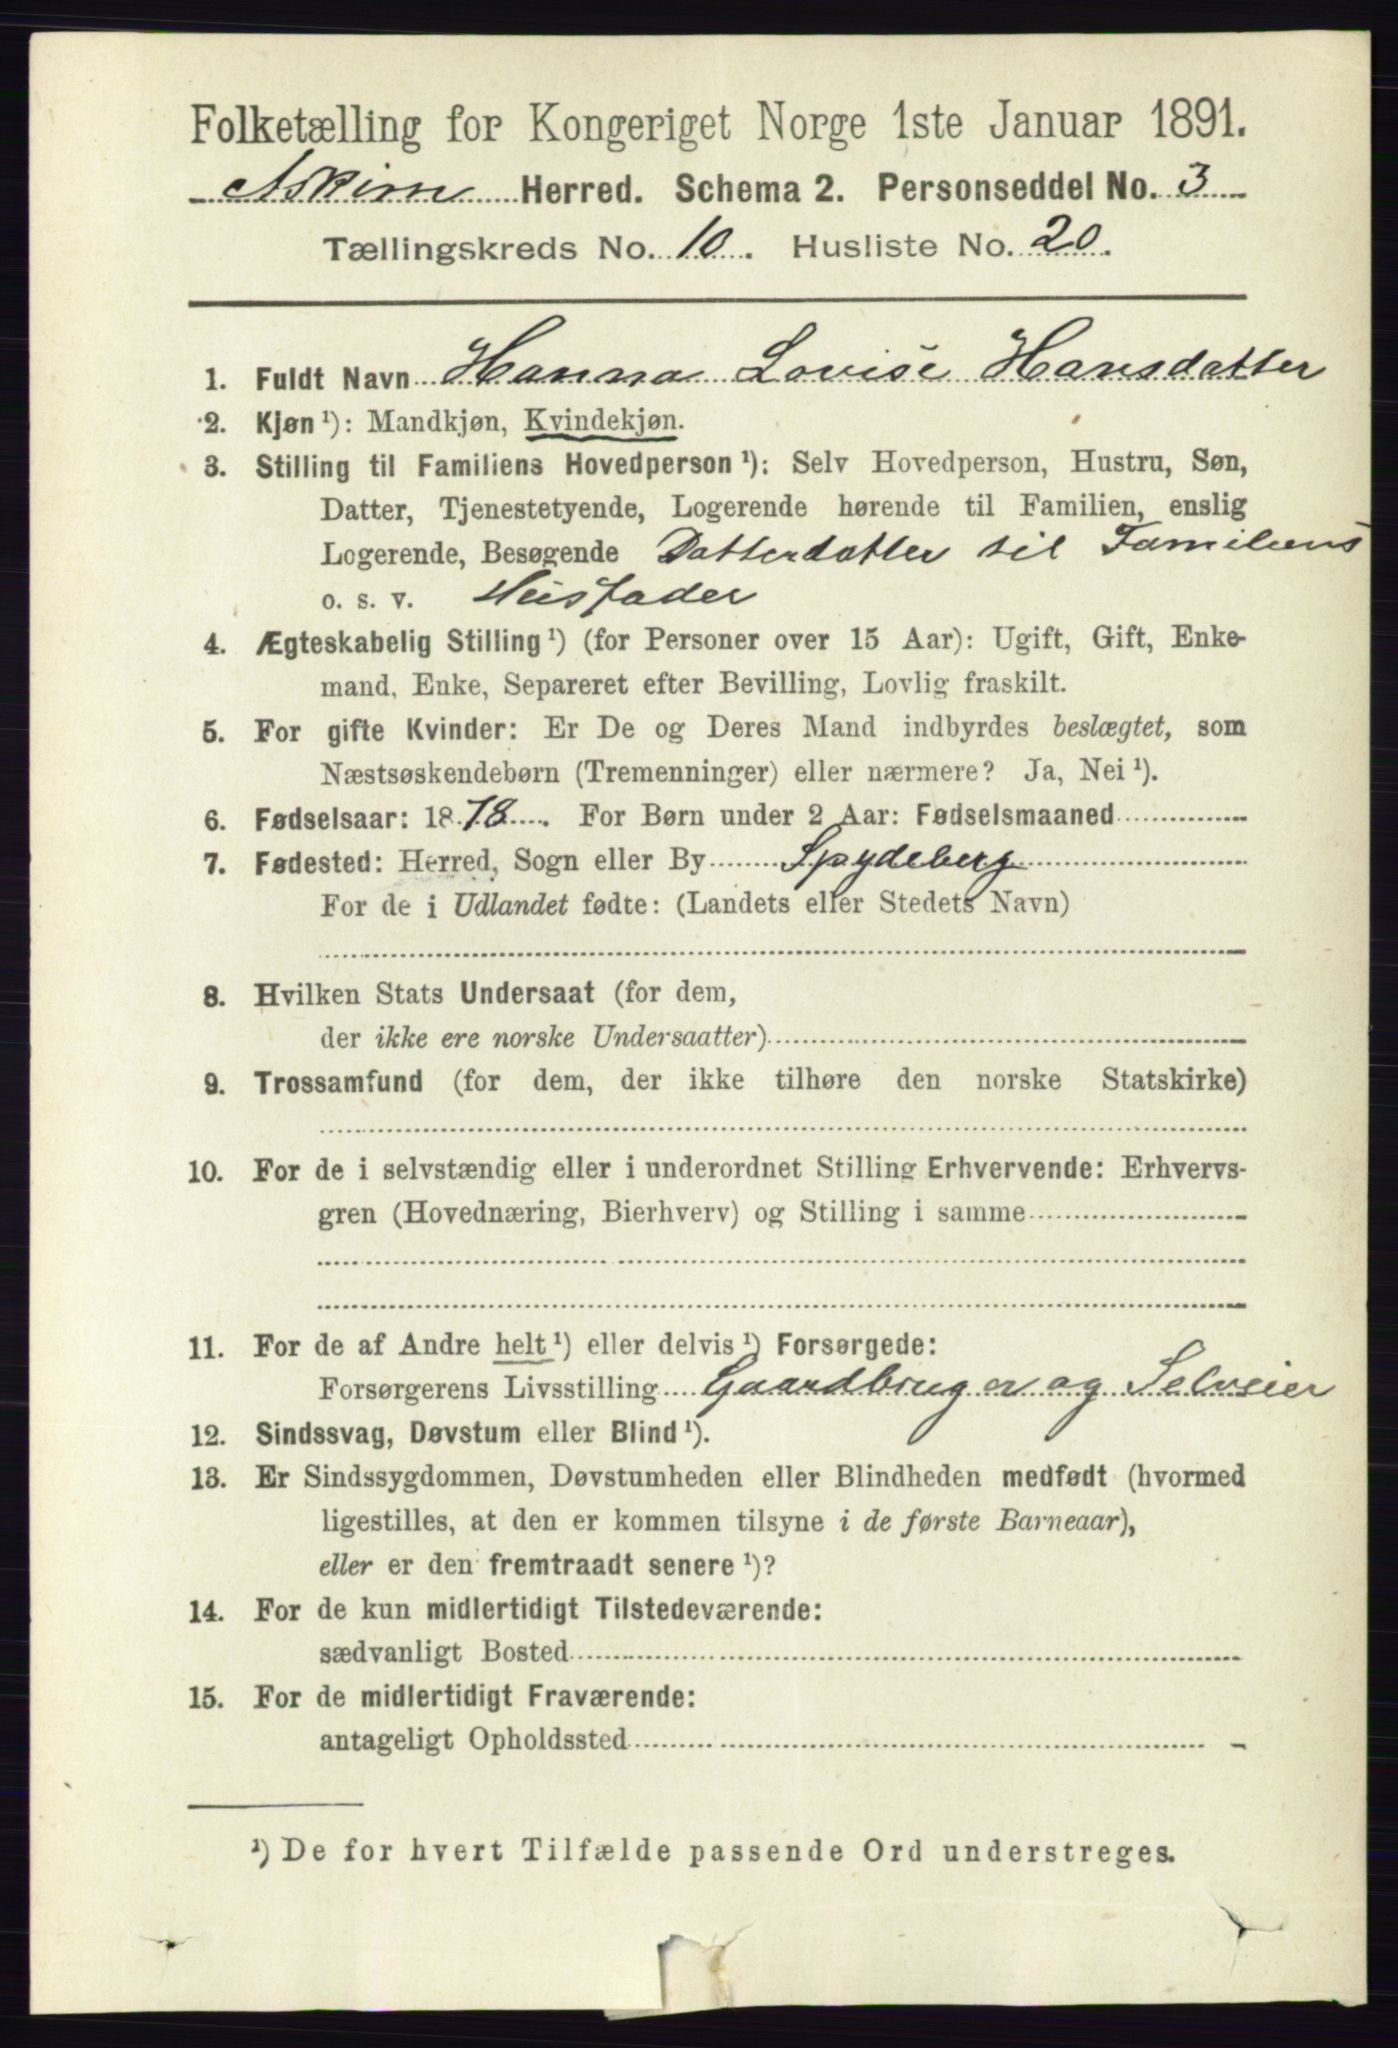 Folketælling for Kongeriget Norge 1ste Januar 1891.
Askim Herred. Schema 2. Personseddel No. 3
Tællingskreds No. 10. Husliste No. 20.
1. Fuldt Navn Hanna Lovise Hansdatter
2. Kjøn ¹): Mandkjøn, Kvindekjøn.
3. Stilling til Familiens Hovedperson ¹): Selv Hovedperson, Hustru, Søn,
Datter, Tjenestetyende, Logerende hørende til Familien, enslig
Logerende, Besøgende Datterdatter til Familiens
o. s. v. Husfader
4. Ægteskabelig Stilling ¹) (for Personer over 15 Aar): Ugift, Gift, Enke-
mand, Enke, Separeret efter Bevilling, Lovlig fraskilt.
5. For gifte Kvinder: Er De og Deres Mand indbyrdes beslægtet, som
Næstsøskendebørn (Tremenninger) eller nærmere? Ja, Nei ¹).
6. Fødselsaar: 1878. For Børn under 2 Aar: Fødselsmaaned
7. Fødested: Herred, Sogn eller By Spydeberg
For de i Udlandet fødte: (Landets eller Stedets Navn)
8. Hvilken Stats Undersaat (for dem,
der ikke ere norske Undersaatter)
9. Trossamfund (for dem, der ikke tilhøre den norske Statskirke)
10. For de i selvstændig eller i underordnet Stilling Erhvervende: Erhvervs-
gren (Hovednæring, Bierhverv) og Stilling i samme
11. For de af Andre helt ¹) eller delvis ¹) Forsørgede:
Forsørgerens Livsstilling Gaardbruger og Selveier
12. Sindssvag, Døvstum eller Blind ¹).
13. Er Sindssygdommen, Døvstumheden eller Blindheden medfødt (hvormed
ligestilles, at den er kommen tilsyne i de første Barneaar),
eller er den fremtraadt senere ¹)?
14. For de kun midlertidigt Tilstedeværende:
sædvanligt Bosted
15. For de midlertidigt Fraværende:
antageligt Opholdssted
¹) De for hvert Tilfælde passende Ord understreges.